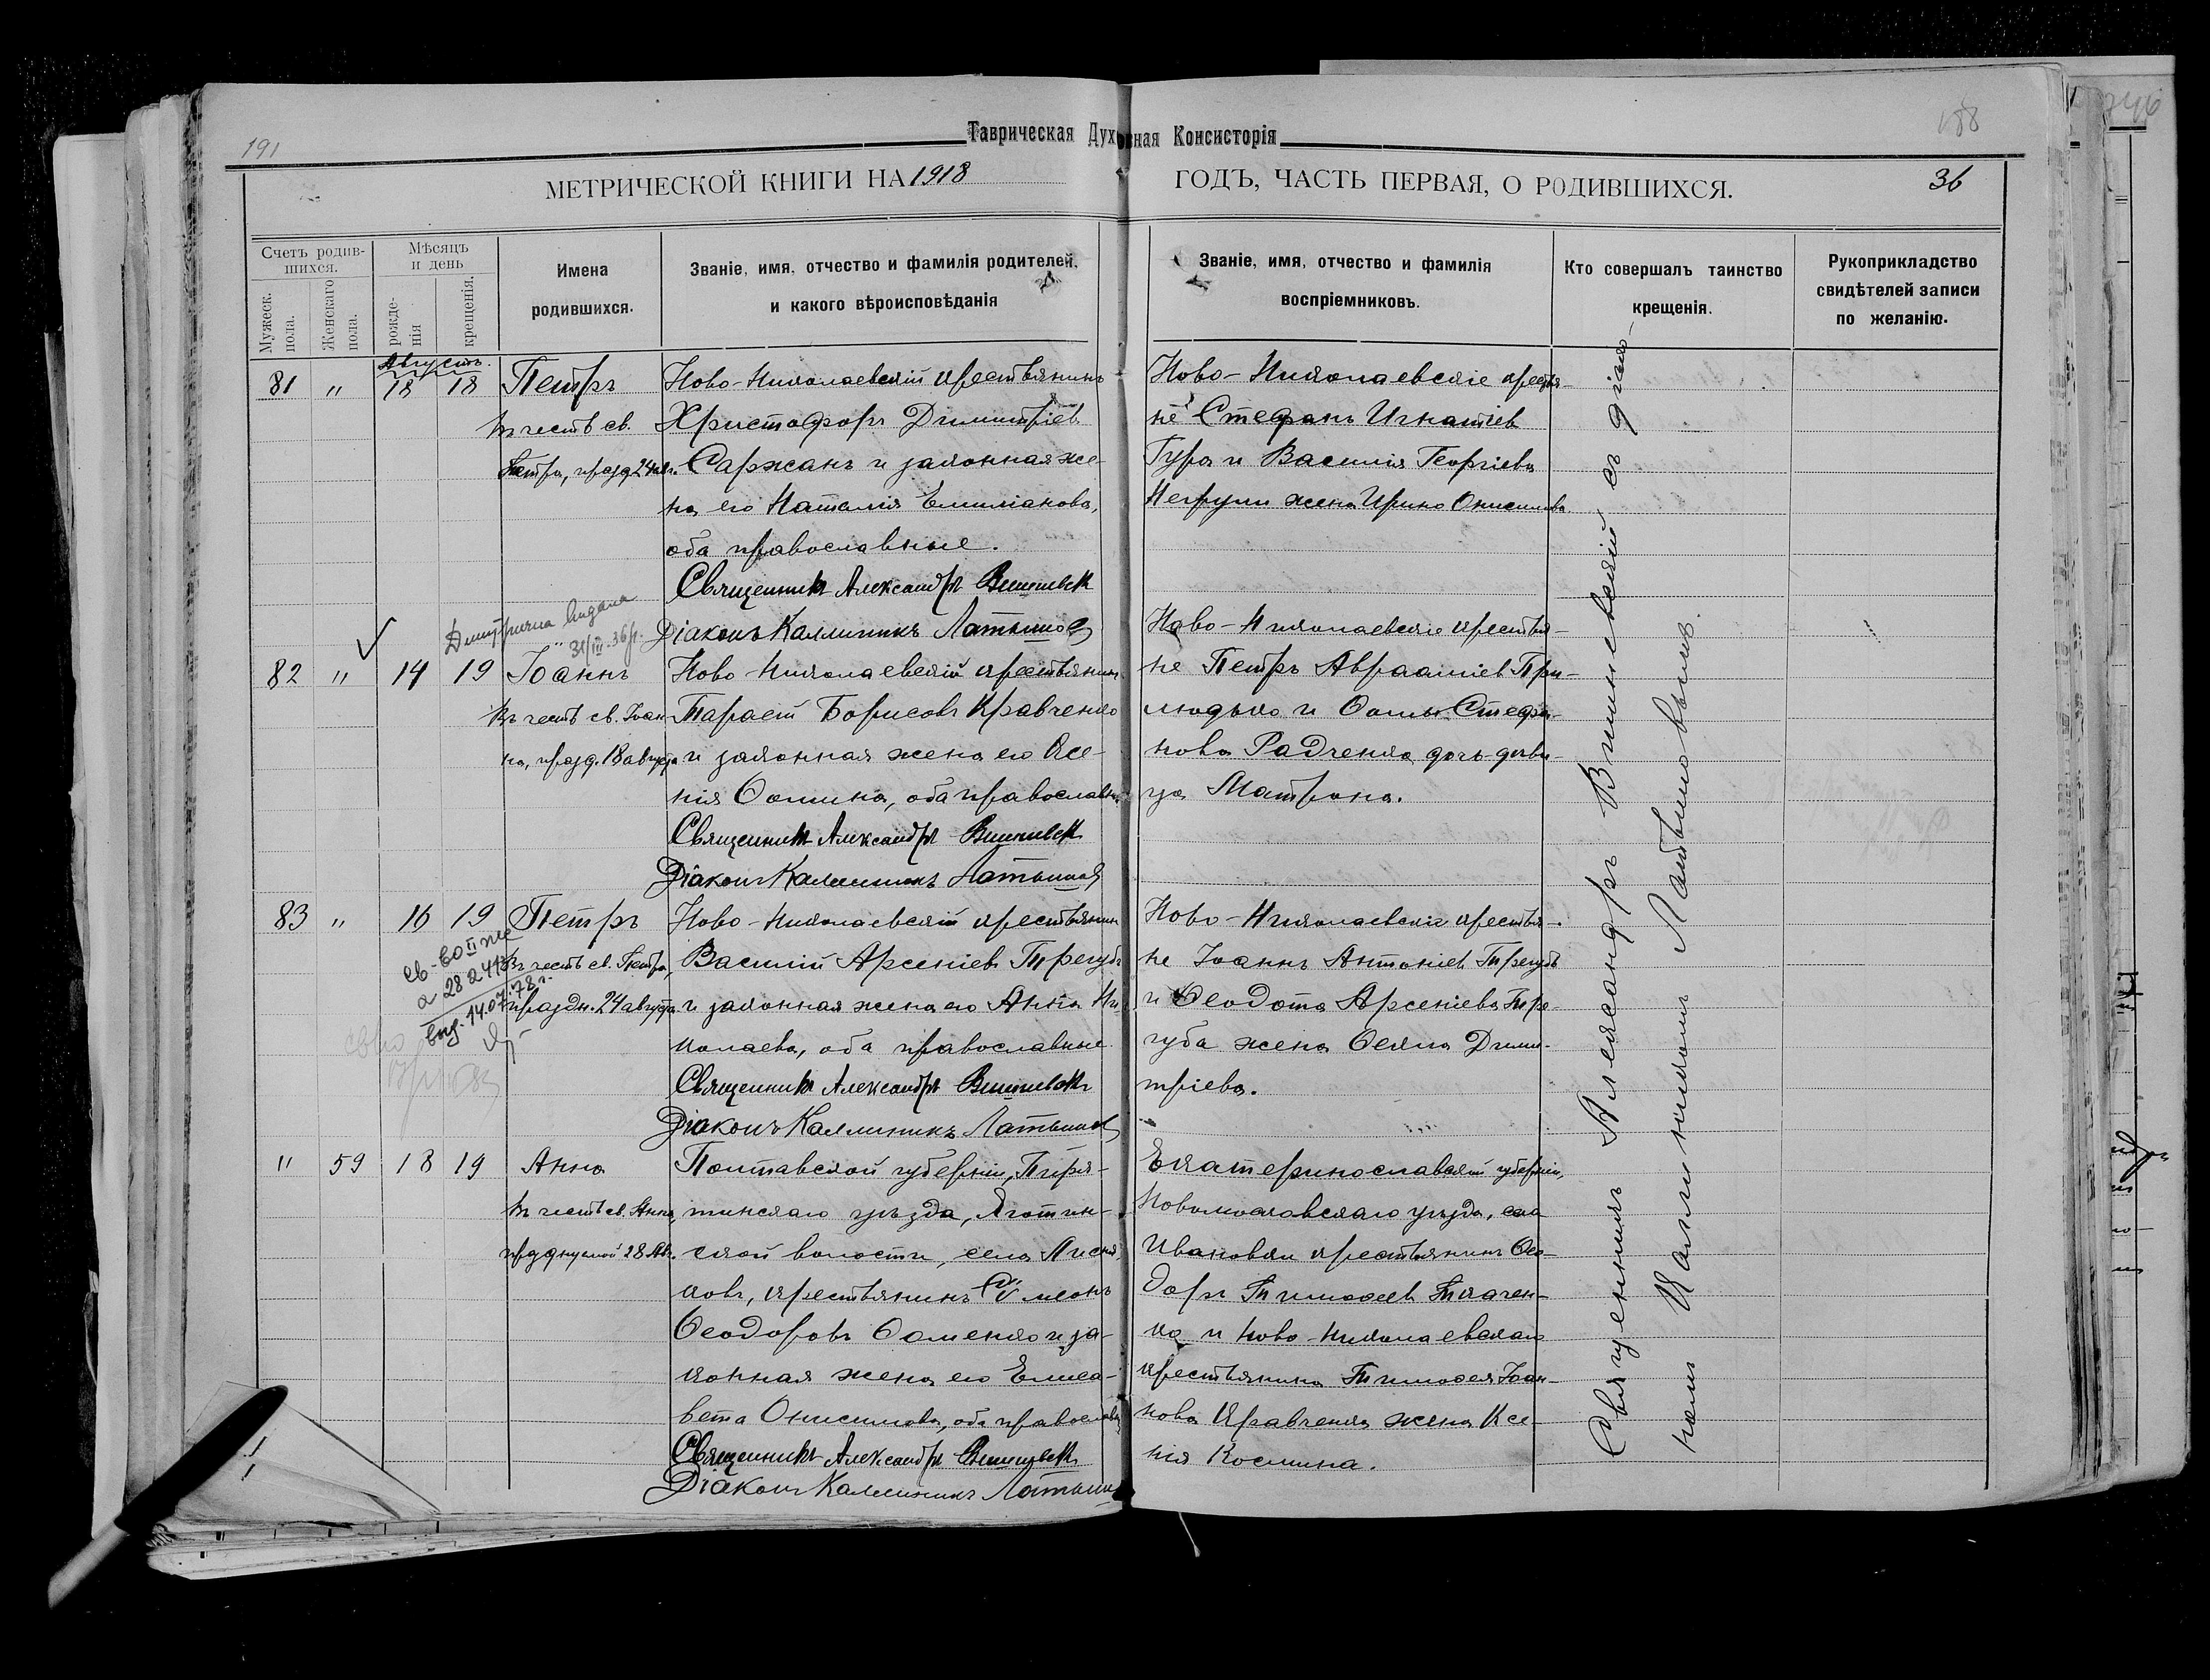 191
Таврическая Духовная Консисторія
188
МЕТРИЧЕСКОЙ КНИГИ НА 1918
ГОДЪ, ЧАСТЬ ПЕРВАЯ, О РОДИВШИХСЯ.
36
Счетъ родив-
шихся.
Мужеск.
пола.
Женскаго
пола.
Мѣсяцъ
и день
рожде-
нія
крещенія.
Имена
родившихся.
Званіе, имя, отчество и фамилія родителей,
и какого вѣроисповѣданія
Званіе, имя, отчество и фамилія
воспріемниковъ.
Кто совершалъ таинство
крещенія.
Рукоприкладство
свидѣтелей записи
по желанію.
Августъ.
81 " 18 18 Петръ
въ честь св.
Петра, празд 24 авг.
Ново-Николаевскій крестьянинъ
Христофоръ Димитріевъ
Саржанъ и законная же-
на его Наталія Емиліанова,
оба православные.
Священникъ Александръ Вишневск
Діаконъ Каллиникъ Латышов
Ново-Николаевскіе крестья-
не Стефанъ Игнатіев
Гура и Василія Георгіева
Негрули жена Ирина Онисимова
видана
31/III.36 р.
82 " 14 19 Іоаннъ
въ честь св. Іоан-
на, празд. 18 августа
Ново-Николаевскій крестьянин
Тарасій Борисовъ Кравченко
и законная жена его Ксе-
нія Ѳомина, оба православн
Священникъ Александръ Вишневск
Діаконъ Каллиникъ Латышов
Ново-Николаевскіе крестья-
не Петръ Авраамиев При-
людько и Ѳомы Стефа-
нова Радченка дочь дѣви-
ца Матрона.
83 " 16 19 Петръ
въ честь св. Петра,
праздн. 24 августа
св-во II
28241
выд. 14.07.78 г.
Ново-Николаевскій крестьянин
Василій Арсеніевъ Трегубъ
и законная жена его Анна Ни-
колаева, оба православные
Священникъ Александръ Вишневск
Діаконъ Каллиникъ Латышов
Ново-Николаевскіе крестья-
не Іоаннъ Антоніев Трегубъ
и Ѳеодота Арсеніева Тре-
губа жена Ѳекла Дими-
тріева.
" 59 18 19 Анна
въ честь св. Анны,
28 Авг.
Полтавской губерніи, Пиря-
тинскаго уѣзда, Яготин-
ской волости, села Лисня-
ковъ, крестьянинъ Сѵмеонъ
Ѳеодоровъ Ѳоменко и за-
конная жена его Елиса-
вета Онисимова, оба православн
Священникъ Александръ Вишневск
Діаконъ Каллиникъ Латыш
Екатеринославской губерніи,
Новомосковскаго уѣзда, села
Ивановки крестьянинъ Ѳео-
доръ Тимоѳеев Ткачен-
ко и Ново-Николаевскаго
крестьянина Тимоѳея Іоан-
нова Кравченка жена Ксе-
нія Космина.
Священникъ Александръ Вишневскій съ діако-
номъ Каллиникомъ Латышовымъ.